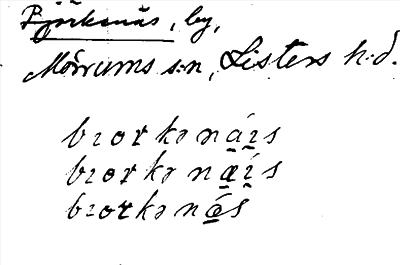 Björkenäs, by,
Mörrums s:n, Listers h:d.
bɿorkənáɿs
bɿorkənǽɿs
bɿorkənás